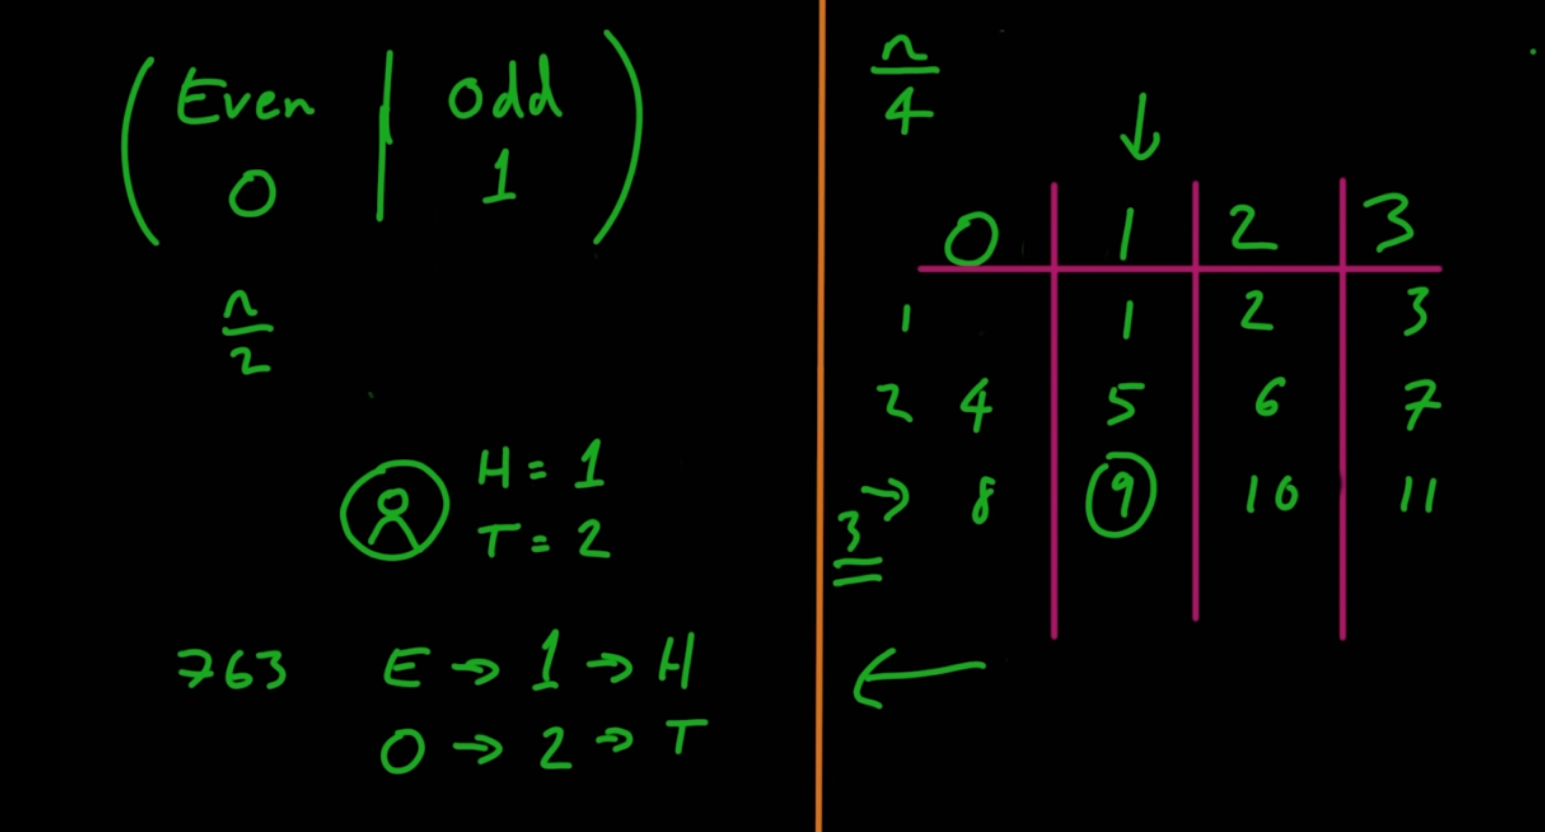 Even | Odd
0 | 1
n
2
H = 1
T = 2
763 E → 1 → H
0 → 2 → T
n
4
0 1 2 3
1 1 2 3
2 4 5 6 7
3 → 8 9 10 11